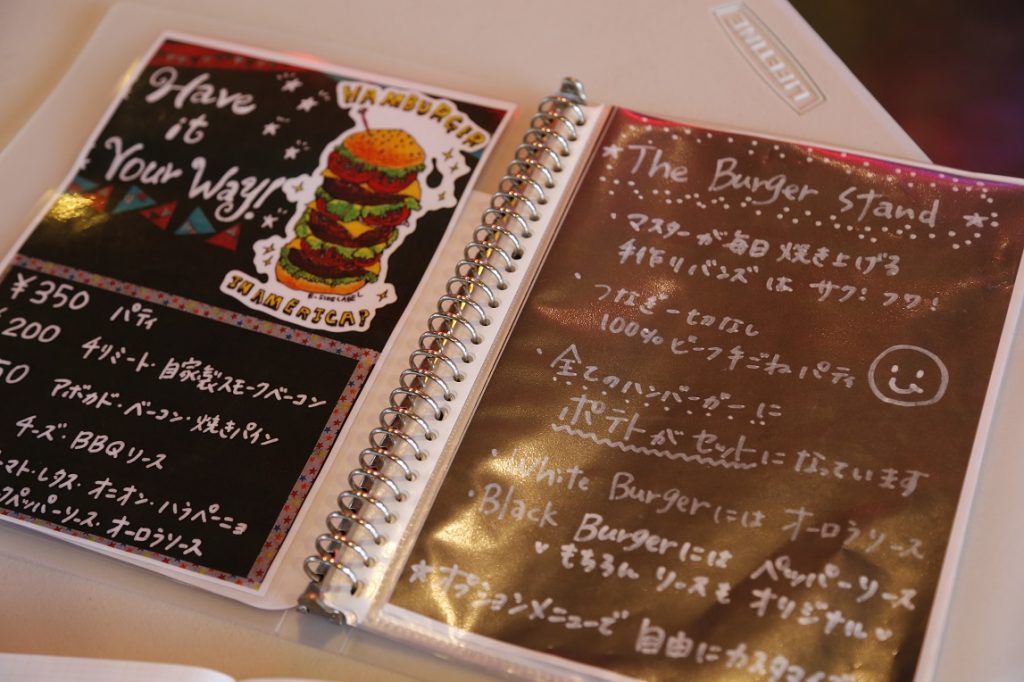 Have
it
Your Way!
HAMBURGER
IN AMERICA?
B-SIDE LABEL
¥350 パティ
¥200 チリミート・自家製スモークベーコン
50 アボカド・ベーコン・焼きパイン
チーズ・BBQソース
マト・レタス・オニオン・ハラペーニョ
ペッパーソース・オーロラソース
LIFETIME
The Burger Stand
・マスターが毎日焼き上げる
手作りバンズは サク!フワ!
・つなぎ一切なし
100%ビーフ手ごねパティ
・全てのハンバーガーに
ポテトがセットになっています
・White Burgerには オーロラソース
・Black Burgerには ペッパーソース
♥もちろん ソースも オリジナル♥
★オプションメニューで 自由にカスタマイズ